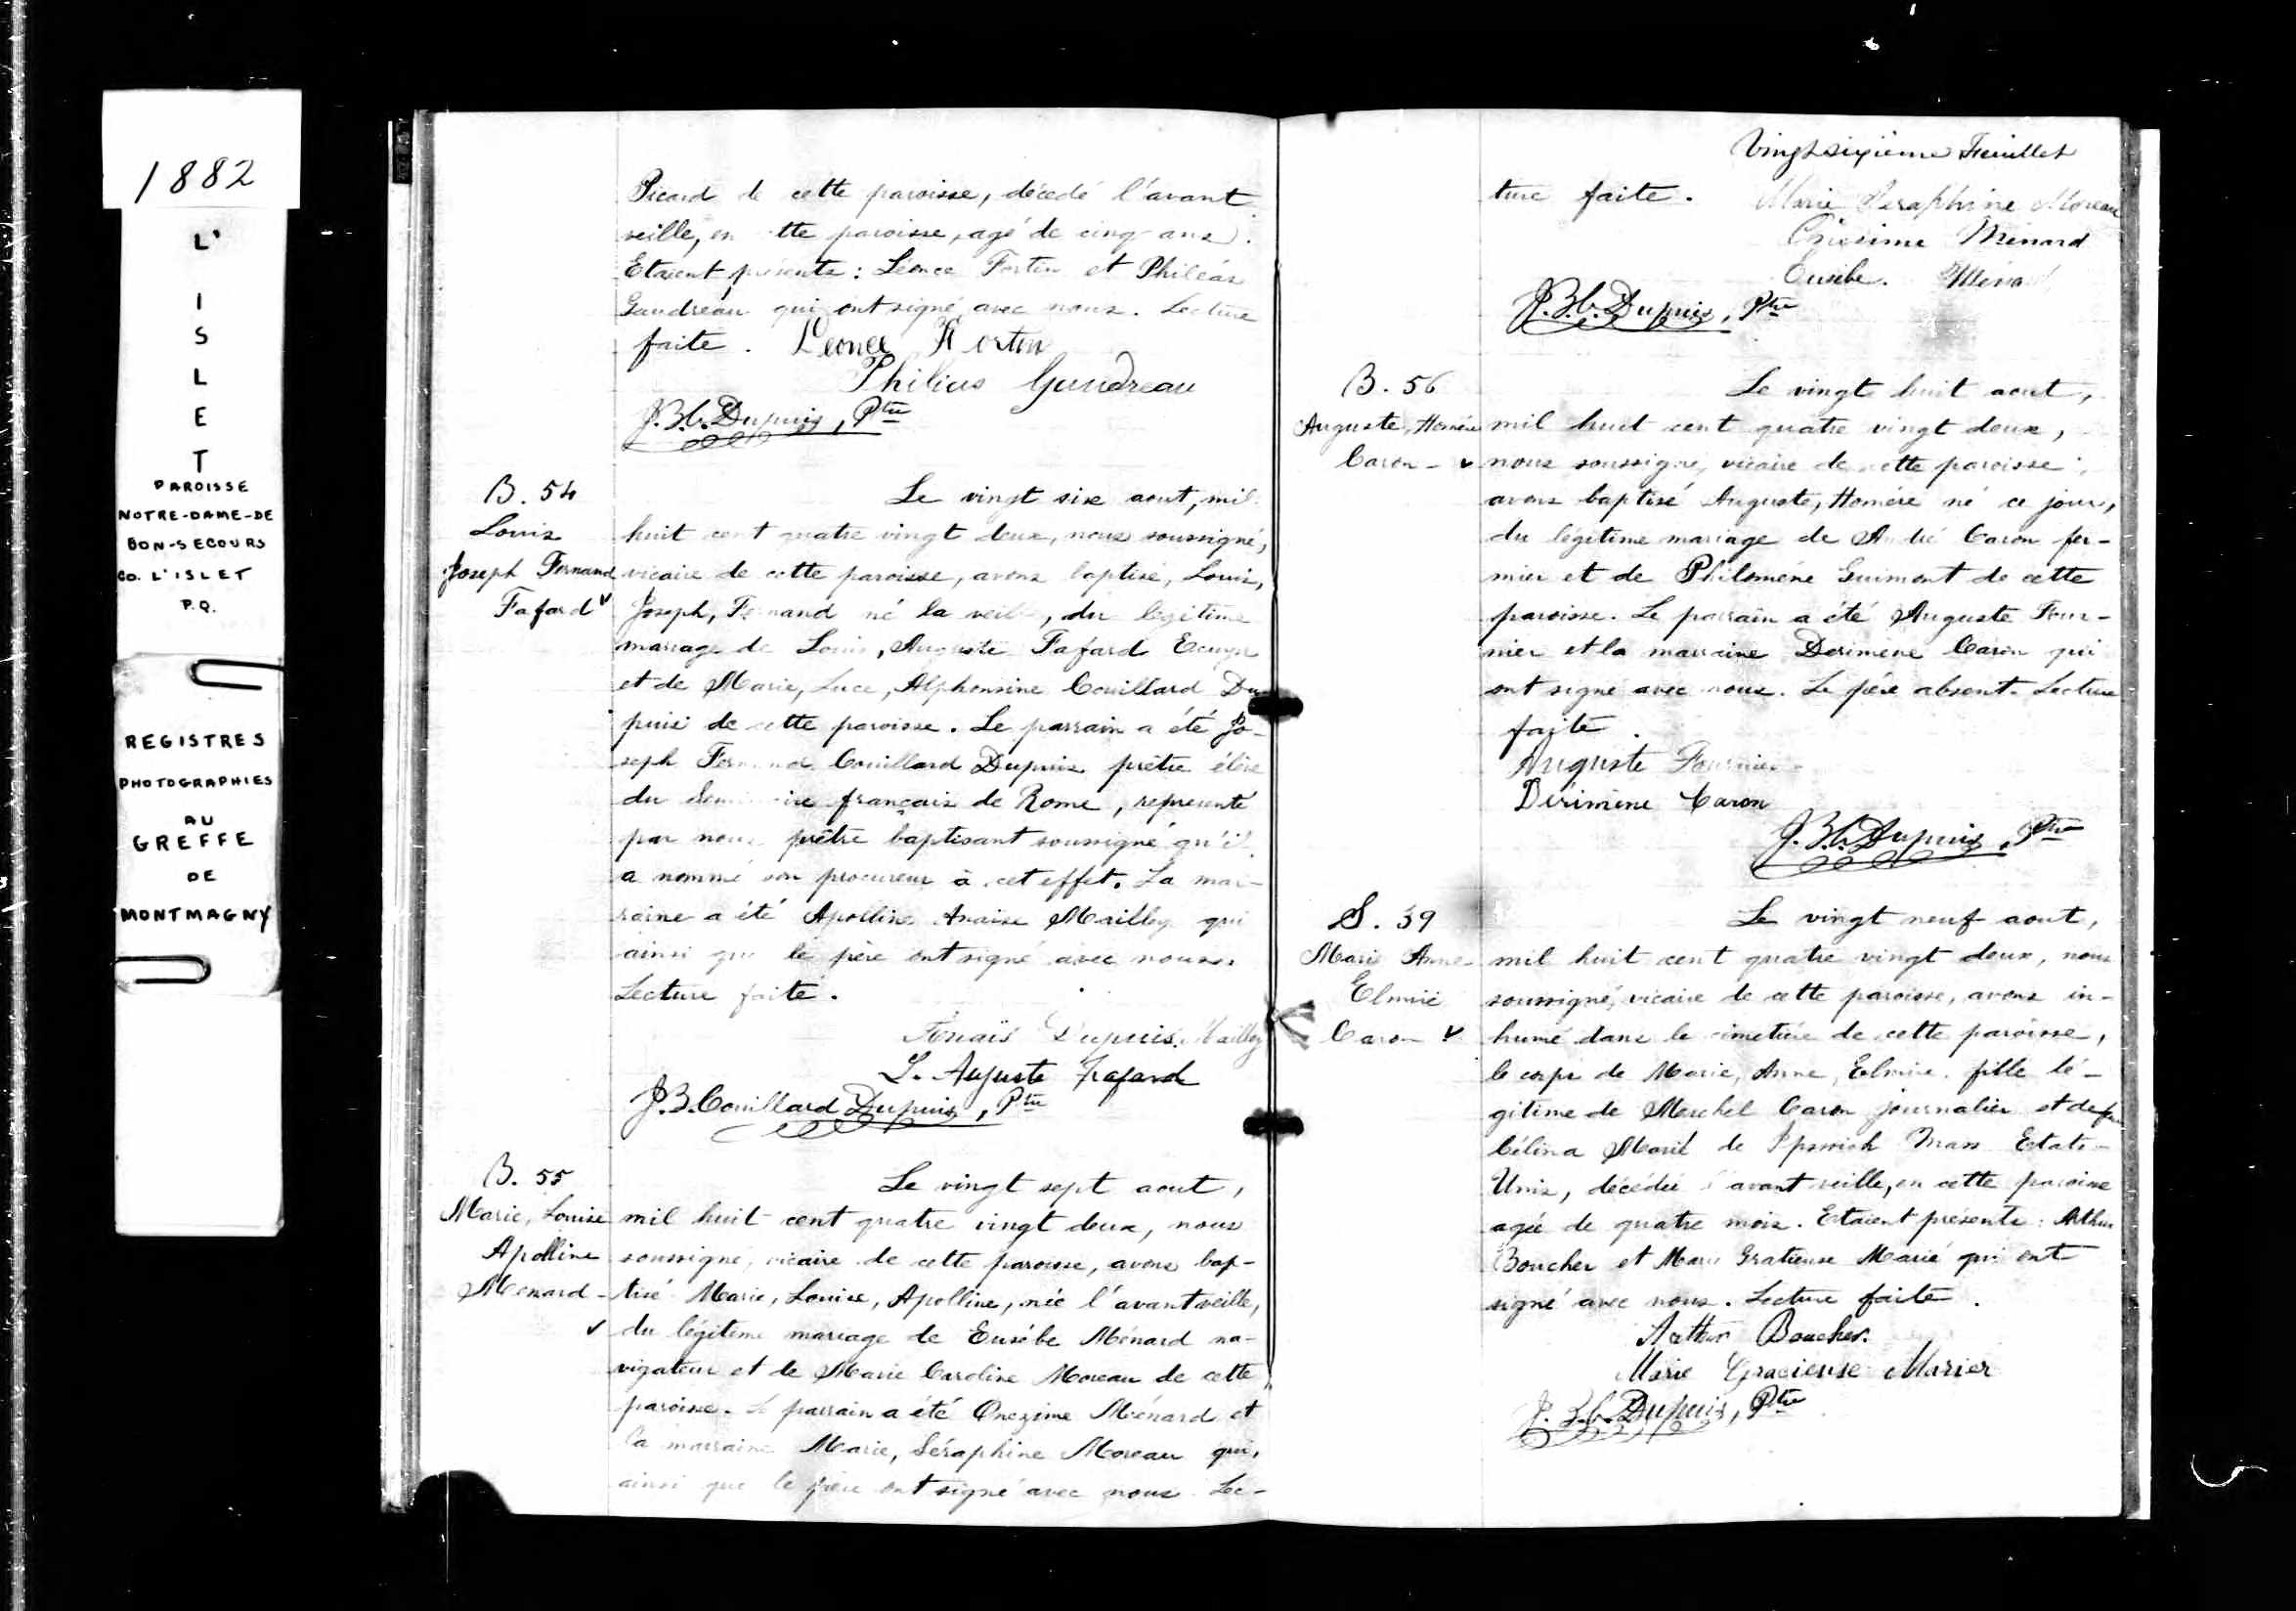 1882
L'
I
S
L
E
T
PAROISSE
NOTRE-DAME-DE
BON-SECOURS
CO. L'ISLET
P.Q.
REGISTRES
PHOTOGRAPHIES
AU
GREFFE
DE
MONTMAGNY
Picard de cette paroisse, décédé l'avant
veille, en cette paroisse, agé de cinq ans.
Etaient présents : Léonce Fortin et Philéas
Gaudreau qui ont signé avec nous. Lecture
faite. Léonce Fortin
Philias Gaudreau
J.B.C. Dupuis, Ptre
B. 54
Louis
Joseph Fernand
Fafard
Le vingt six aout, mil
huit cent quatre vingt deux, nous soussigné,
vicaire de cette paroisse, avons baptisé, Louis,
Joseph, Fernand né la veille, du légitime
mariage de Louis, Auguste Fafard Ecuyer
et de Marie, Luce, Alphonsine Couillard Du
puis de cette paroisse. Le parrain a été Jo-
seph Fernand Couillard Dupuis prêtre élève
du Seminaire français de Rome, représenté
par nous prêtre baptisant soussigné qu'il
a nommé son procureur à cet effet. La mar-
raine a été Apolline Anaise Mailloy qui
ainsi que le père ont signé avec nous.
Lecture faite.
Anaïs Dupuis
L. Auguste Fafard
J.B. Couillard Dupuis, Ptre
B. 55
Marie, Louise
Apolline
Menard
Le vingt sept aout,
mil huit cent quatre vingt deux, nous
soussigné, vicaire de cette paroisse, avons bap-
tisé Marie, Louise, Apolline, née l'avant veille,
du légitime mariage de Eusébe Ménard na-
vigateur et de Marie Caroline Moreau de cette
paroisse. Le parrain a été Onezime Ménard et
la marraine Marie, Séraphine Moreau qui,
ainsi que le père ont signé avec nous. Lec-
Vingt sixième Feuillet
ture faite. Marie Seraphine Moreau
Onesime Menard
Eusèbe. Ménard
J.B.C. Dupuis, Ptre
B. 56
Auguste, Homére
Caron
Le vingt huit aout,
mil huit cent quatre vingt deux,
nous soussigné, vicaire de cette paroisse,
avons baptisé Auguste, Homére né ce jour,
du légitime mariage de André Caron fer-
mier et de Philoméne Guimont de cette
paroisse. Le parrain a été Auguste Four-
nier et la marraine Derimène Caron qui
ont signé avec nous. Le père absent. Lecture
faite.
Auguste Fournier
Dérimène Caron
J.B.C. Dupuis, Ptre
S. 39
Marie Anne
Elmire
Caron
Le vingt neuf aout,
mil huit cent quatre vingt deux, nous
soussigné, vicaire de cette paroisse, avons in-
humé dans le cimetière de cette paroisse,
le corps de Marie, Anne, Elmire. fille lé-
gitime de Merchel Caron journalier et de feu
Célina Marié de Ipswich Mass Etats-
Unis, décédée l'avant veille, en cette paroisse
agée de quatre mois. Etaient présents : Arthur
Boucher et Marie Gratieuse Marié qui ont
signé avec nous. Lecture faite.
Arthur Boucher.
Marie Gracieuse Marier
J.B.C. Dupuis, Ptre